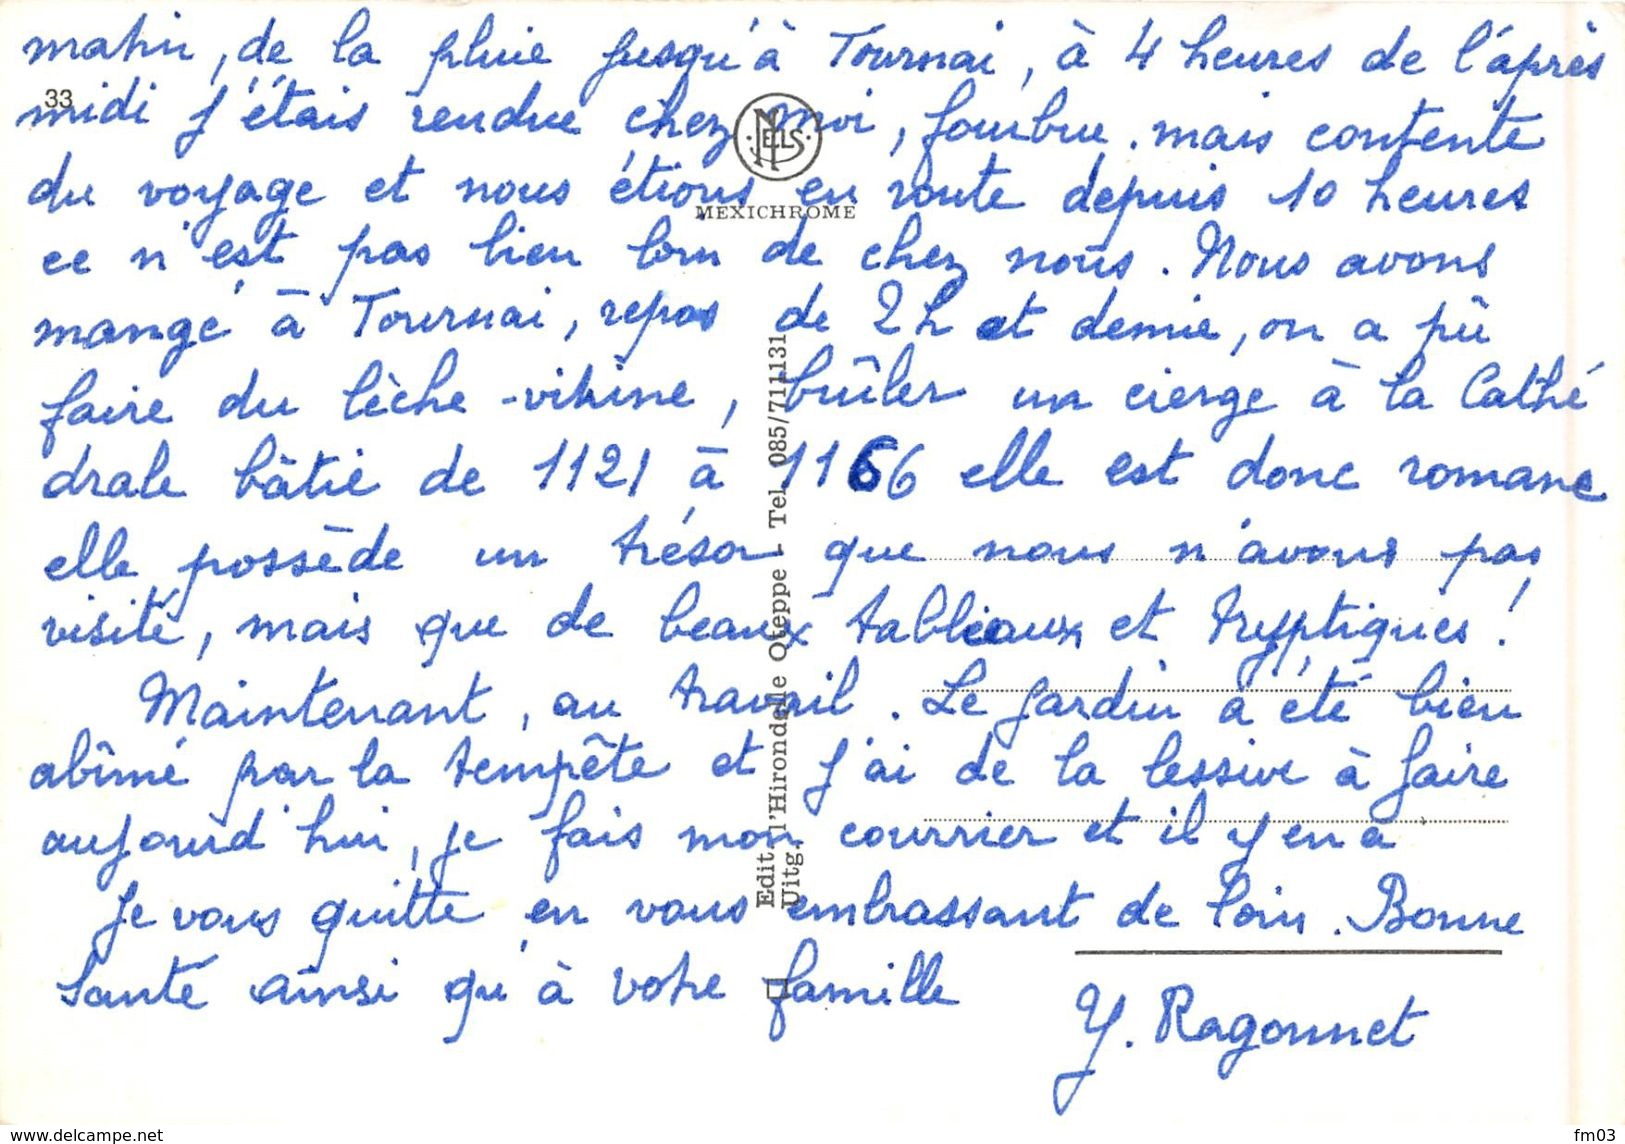 matin, de la pluie jusqu'à Tournai, à 4 heures de l'après
33
midi j'étais rendue chez moi, fourbue. mais contente
NELS
du voyage et nous étions en route depuis 10 heures
MEXICHROME
ce n'est pas bien loin de chez nous. Nous avons
mangé à Tournai, repas de 2h et demie, on a pû
faire du lèche-vitrine, brûler un cierge à la Cathé
drale bâtie de 1121 à 1166 elle est donc romane
elle possède un trésor que nous n'avons pas
visité, mais que de beaux tableaux et tryptiques!
Maintenant, au travail. Le jardin a été bien
abîmé par la tempête et j'ai de la lessive à faire
aujourd'hui, je fais mon courrier et il y en a
Je vous quitte en vous embrassant de loin. Bonne
Santé ainsi qu'à votre famille
Y. Ragonnet
Edit. l'Hirondelle Oteppe - Tel. 085/711131
Uitg.
www.delcampe.net
fm03